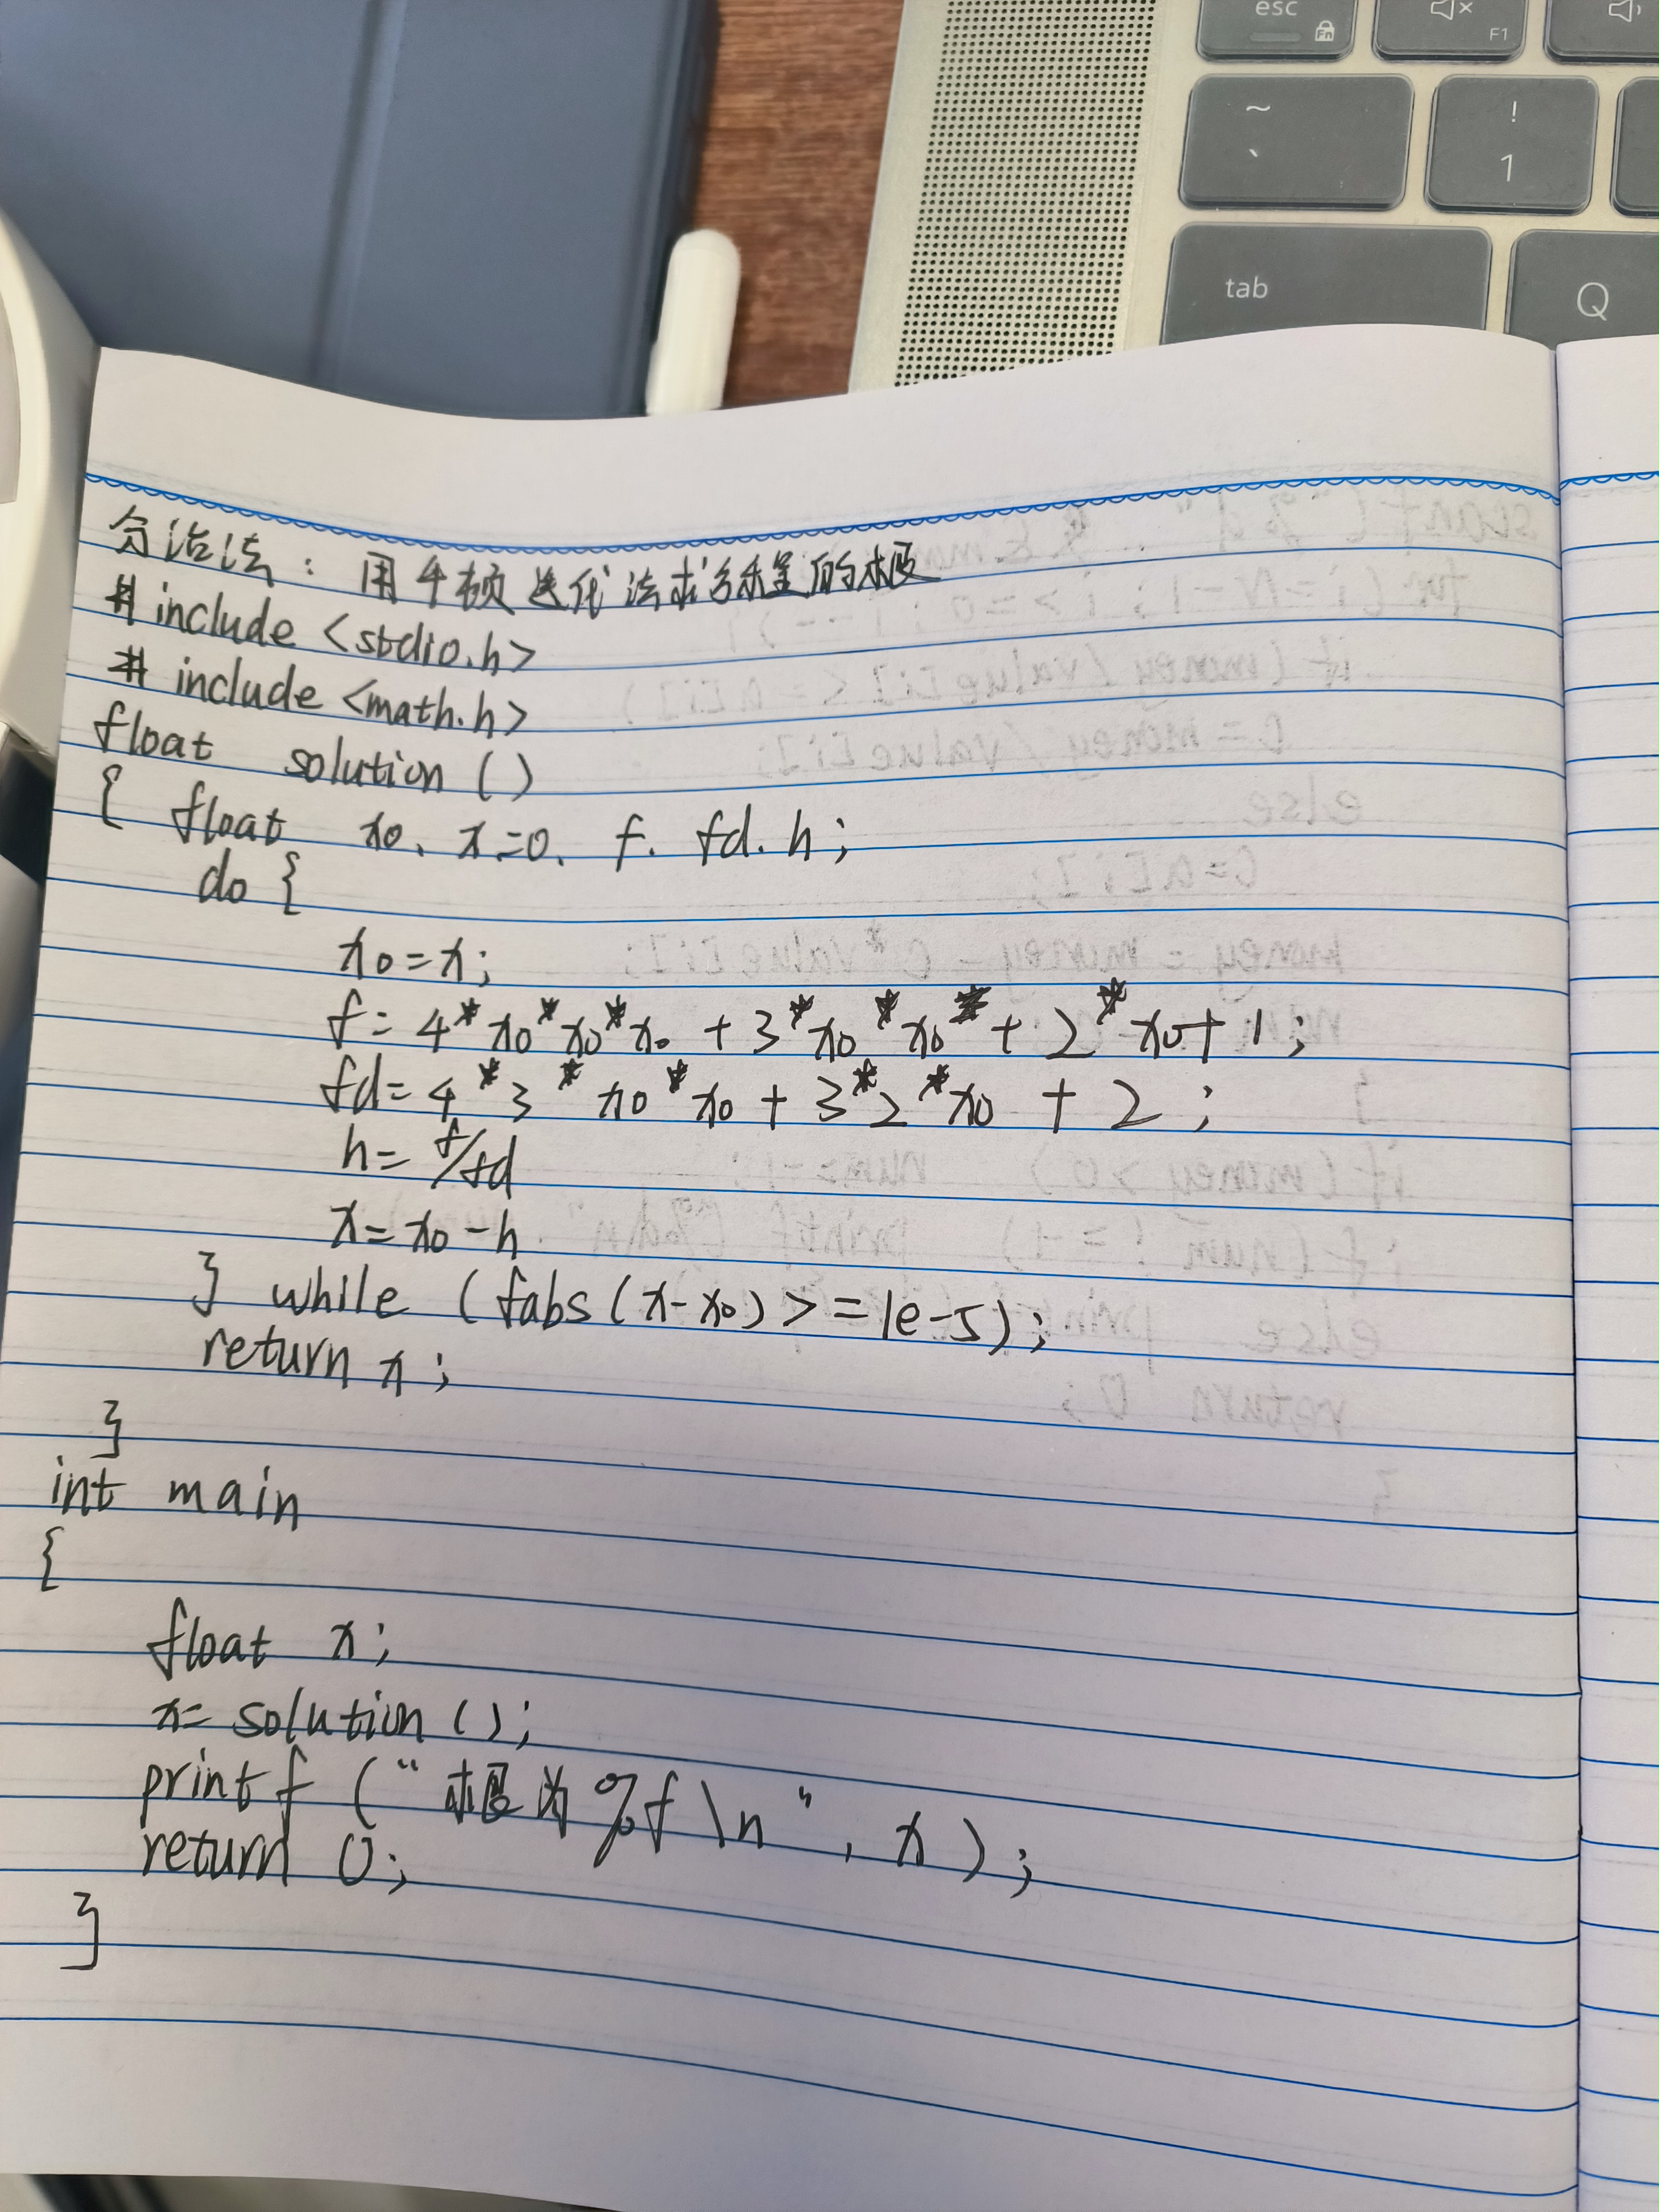 esc
Fn
F1
~
`
!
1
tab
Q
分治法：用牛顿迭代法求方程的根
# include <stdio.h>
# include <math.h>
float solution ()
{ float x0、x=0、f. fd. h;
do {
x0=x;
f= 4*x0*x0*x0 + 3*x0*x0*+ 2*x0+1;
fd=4*3*x0*x0+3*2*x0 + 2;
h= f/fd
x=x0-h
} while (fabs(x-x0) >=1e-5);
return x;
}
int main
{
float x;
x= solution ();
printf ("根为%f\n", x);
return 0;
}